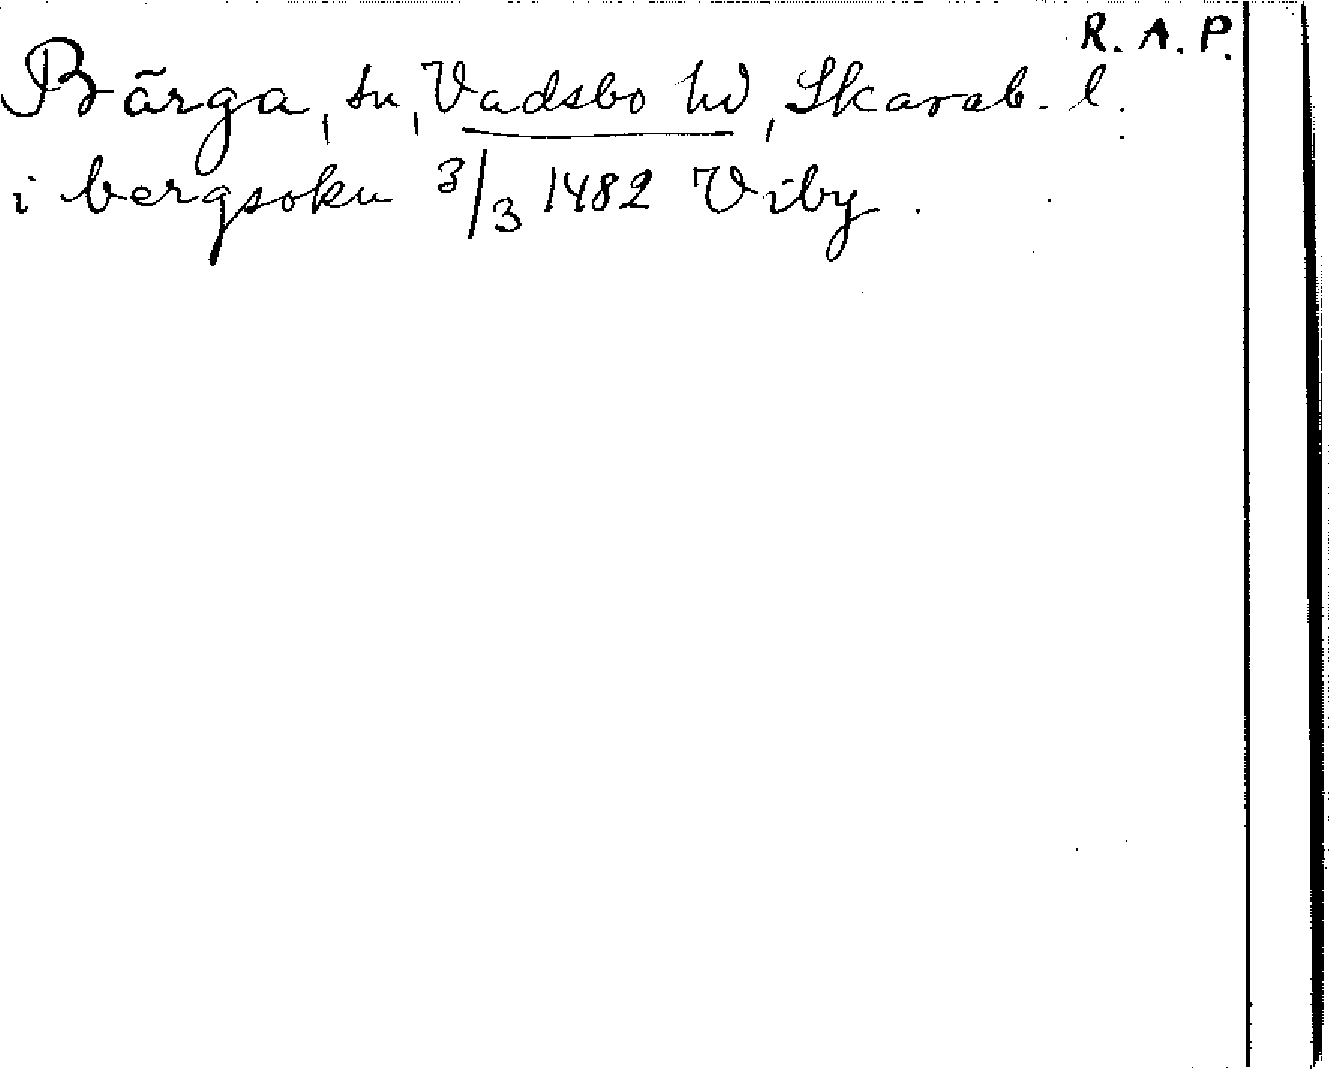 R. A. P.
Bärga, sn, Vadsbo hd, Skarab. l.
i bergsokn 3/3 1482 Viby.